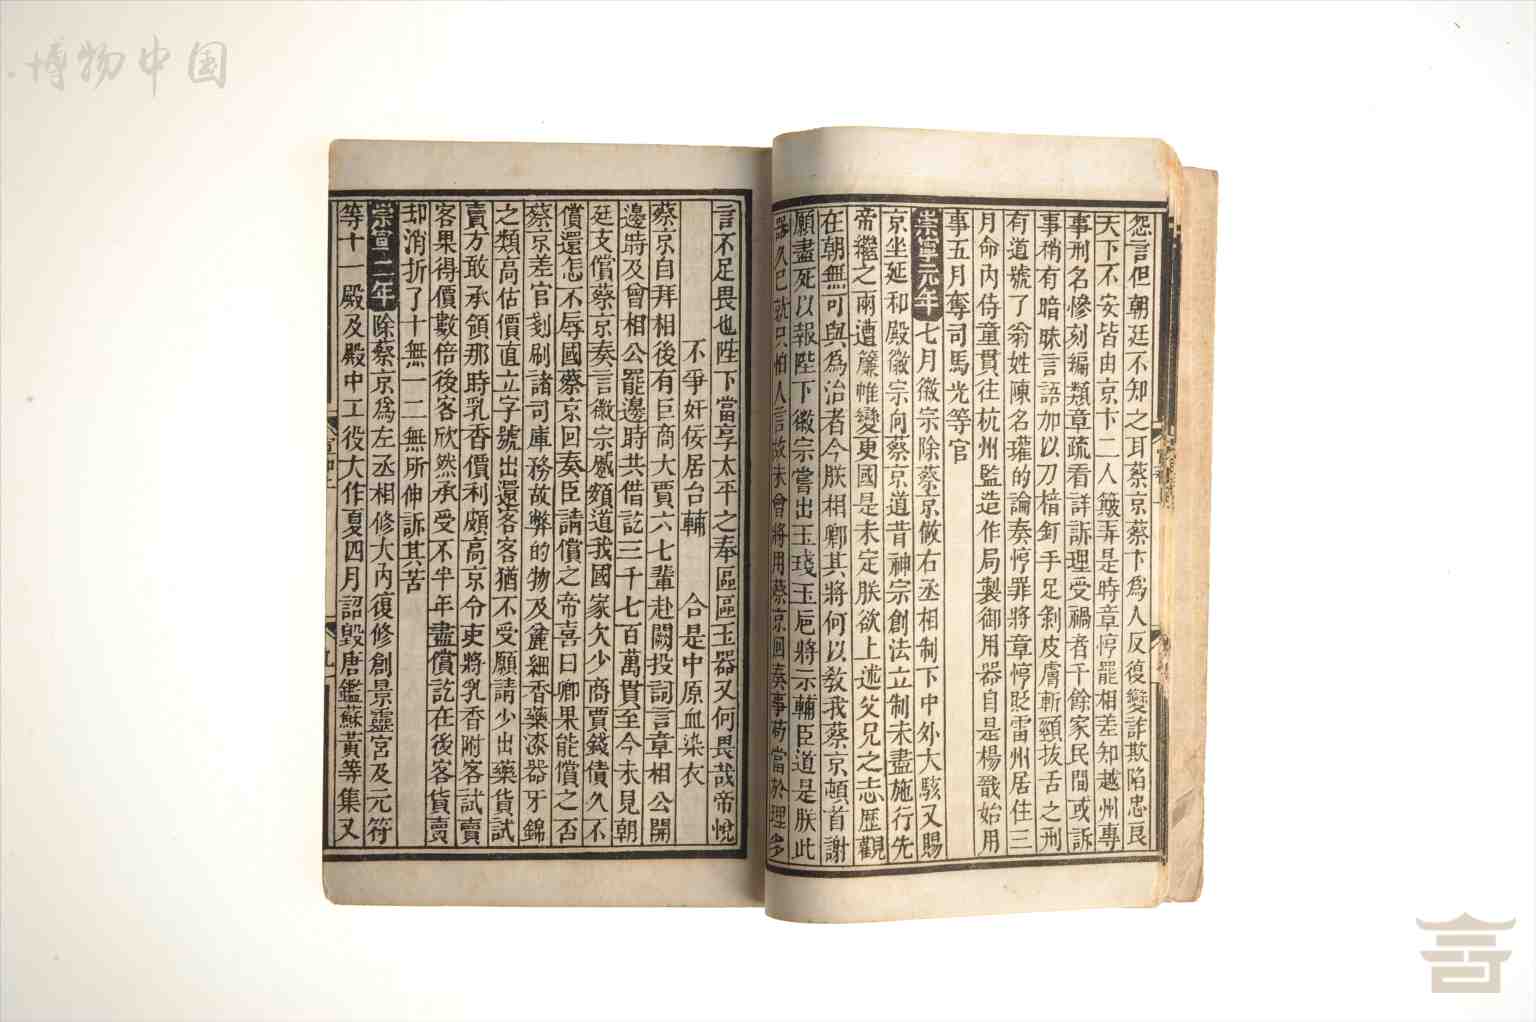 博物中国
怨言但朝廷不知之耳蔡京蔡卞爲人反復變詐欺陷忠良
天下不安皆由京卞二人簸弄是時章惇罷相差知越州專
事刑名慘刻編類章疏看詳訴理受禍者千餘家民間或訴
事稍有暗昧言語加以刀棓釘手足剝皮膚斬頸拔舌之刑
有道號了翁姓陳名瓘的論奏惇罪將章惇貶雷州居住三
月命內侍童貫往杭州監造作局製御用器自是楊戩始用
事五月奪司馬光等官
崇寧元年七月徽宗除蔡京做右丞相制下中外大駭又賜
京坐延和殿徽宗向蔡京道昔神宗創法立制未盡施行先
帝繼之兩遭簾帷變更國是未定朕欲上述父兄之志歷觀
在朝無可與爲治者今朕相卿其將何以敎我蔡京頓首謝
願盡死以報陛下徽宗嘗出玉琖玉巵將示輔臣道是朕此
器久已就只怕人言故未曾將用蔡京回奏事苟當於理多
言不足畏也陛下當享太平之奉區區玉器又何畏哉帝悅
不爭奸佞居台輔　合是中原血染衣
蔡京自拜相後有巨商大賈六七輩赴闕投詞言章相公開
邊時及曾相公罷邊時共借訖三千七百萬貫至今未見朝
廷支償蔡京奏言徽宗慼頞道我國家欠少商賈錢債久不
償還怎不辱國蔡京回奏臣請償之帝喜曰卿果能償之否
蔡京差官刬刷諸司庫務故弊的物及麄細香藥漆器牙錦
之類高估價直立字號出還客客猶不受願請少出藥貨試
賣方敢承領那時乳香價利頗高京令吏將乳香附客試賣
客果得價數倍後客欣然承受不半年盡償訖在後客貨賣
却消折了十無一二無所伸訴其苦
崇寧二年除蔡京爲左丞相修大內復修創景靈宮及元符
等十一殿及殿中工役大作夏四月詔毀唐鑑蘇黃等集又